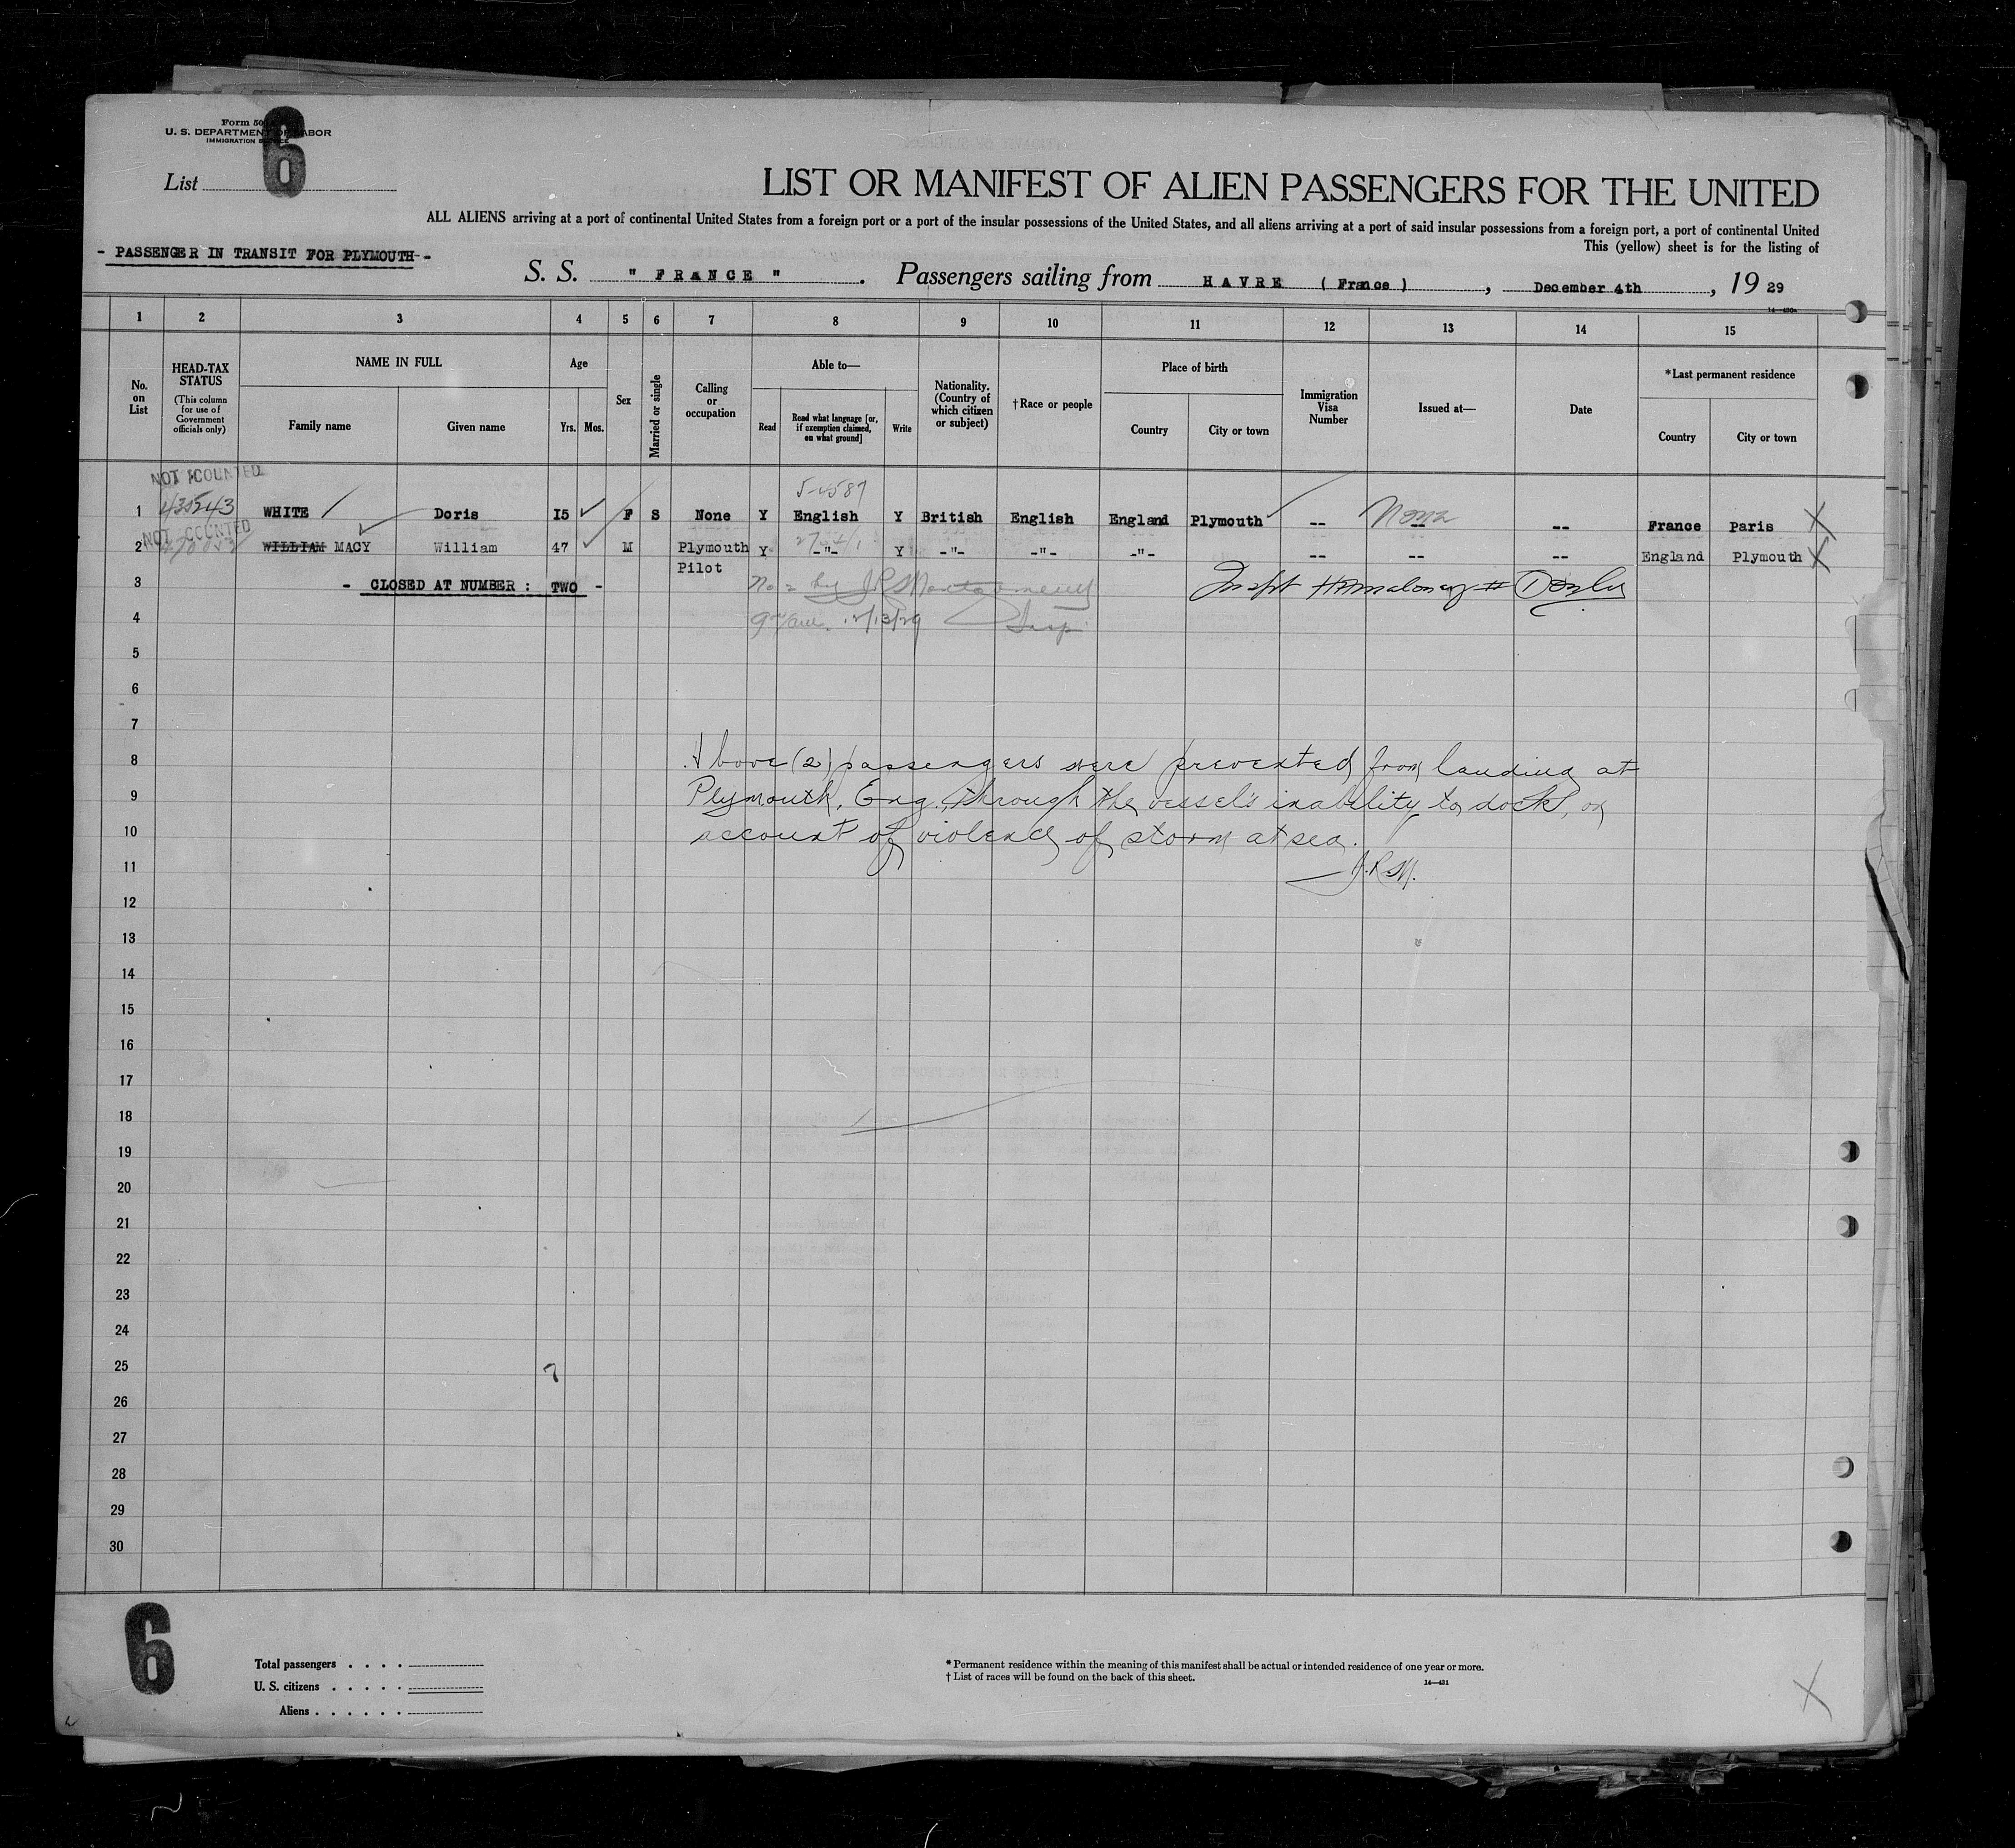 Form 50
U. S. DEPARTMENT OF LABOR
IMMIGRATION SERVICE
6
List
LIST OR MANIFEST OF ALIEN PASSENGERS FOR THE UNITED
ALL ALIENS arriving at a port of continental United States from a foreign port or a port of the insular possessions of the United States, and all aliens arriving at a port of said insular possessions from a foreign port, a port of continental United
This (yellow) sheet is for the listing of
- PASSENGER IN TRANSIT FOR PLYMOUTH--
S. S. " FRANCE " . Passengers sailing from HAVRE ( France ) , December 4th , 19 29
1 2 3 4 5 6 7 8 9 10 11 12 13 14 15
No. on List
HEAD-TAX STATUS
(This column for use of Government officials only)
NAME IN FULL
Family name Given name
Age
Yrs. Mos.
Sex
Married or single
Calling or occupation
Able to—
Read
Read what language [or, if exemption claimed, on what ground]
Write
Nationality. (Country of which citizen or subject)
†Race or people
Place of birth
Country City or town
Immigration Visa Number
Issued at—
Date
*Last permanent residence
Country City or town
NOT COUNTED
1 WHITE Doris I5 F S None Y English Y British English England Plymouth -- None -- -- France Paris X
NOT COUNTED
2 WILLIAM MACY William 47 M Plymouth Pilot Y -"- Y -"- -"- -"- -- -- -- England Plymouth X
3 - CLOSED AT NUMBER : TWO -
No 2 by J.R. Montgomery
12/13/29 Insp
4
5
6
7
8 Above (2) passengers were prevented from landing at
9 Plymouth, Eng., through the vessel's inability to dock, on
10 account of violence of storm at sea.
11 J.R.M.
12
13
14
15
16
17
18
19
20
21
22
23
24
25
26
27
28
29
30
6
Total passengers . . . .
U. S. citizens . . . . .
Aliens . . . . . .
* Permanent residence within the meaning of this manifest shall be actual or intended residence of one year or more.
† List of races will be found on the back of this sheet.
14—431
X